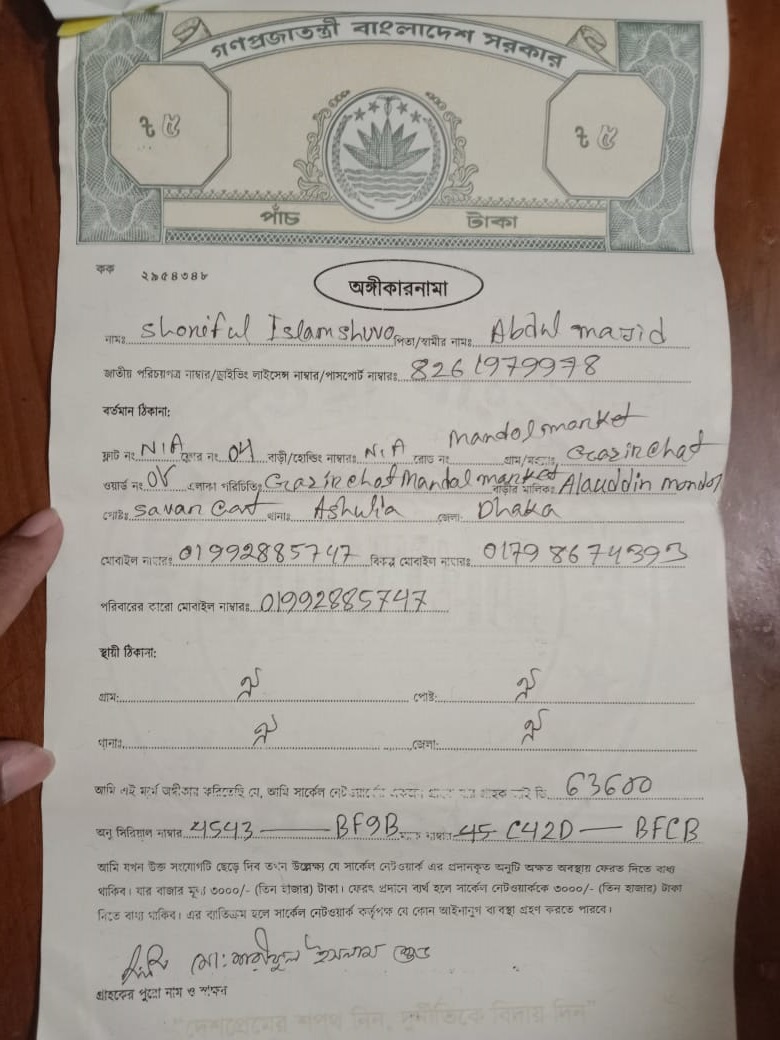 গণপ্রজাতন্ত্রী বাংলাদেশ সরকার
৳ ৫ ৳ ৫
পাঁচ টাকা
কক ২৯৫৪৩৪৮
অঙ্গীকারনামা
নামঃ Shoriful Islam shuvo পিতা/স্বামীর নামঃ Abdul mazid
জাতীয় পরিচয়পত্র নাম্বার/ড্রাইভিং লাইসেন্স নাম্বার/পাসপোর্ট নাম্বারঃ 8261979978
বর্তমান ঠিকানা:
ফ্লাট নং N/A ফ্লোর নং 04 বাড়ী/হোল্ডিং নাম্বারঃ N/A রোড নং Mandol market গ্রাম/মহল্লাঃ Gazirchat
ওয়ার্ড নং 08 এলাকা পরিচিতিঃ Gazirchat Mandal market বাড়ীর মালিকঃ Alauddin mondol
পোষ্টঃ Savar Cant থানাঃ Ashulia জেলা Dhaka
মোবাইল নাম্বারঃ 01992885747 বিকল্প মোবাইল নাম্বারঃ 01798674393
পরিবারের কারো মোবাইল নাম্বারঃ 01992885747
স্থায়ী ঠিকানা:
গ্রাম: ঐ পোষ্ট: ঐ
থানাঃ ঐ জেলা: ঐ
আমি এই মর্মে অঙ্গীকার করিতেছি যে, আমি সার্কেল নেটওয়ার্কের একজন গ্রাহক যার গ্রাহক আই ডি 63600
অনু সিরিয়াল নাম্বার 4543 — BF9B নাম্বার 45 C42D — BFCB
আমি যখন উক্ত সংযোগটি ছেড়ে দিব তখন উল্লেক্ষ্য যে সার্কেল নেটওয়ার্ক এর প্রদানকৃত অনুটি অক্ষত অবস্থায় ফেরত দিতে বাধ্য
থাকিব। যার বাজার মূল্য ৩০০০/- (তিন হাজার) টাকা। ফেরৎ প্রদানে ব্যর্থ হলে সার্কেল নেটওয়ার্ককে ৩০০০/- (তিন হাজার) টাকা
দিতে বাধ্য থাকিব। এর ব্যতিক্রম হলে সার্কেল নেটওয়ার্ক কর্তৃপক্ষ যে কোন আইনানুগ ব্যবস্থা গ্রহণ করতে পারবে।
মো: শরীফুল ইসলাম শুভ
গ্রাহকের পুরো নাম ও স্বাক্ষর
"দেশপ্রেমের শপথ নিন, দুর্নীতিকে বিদায় দিন"